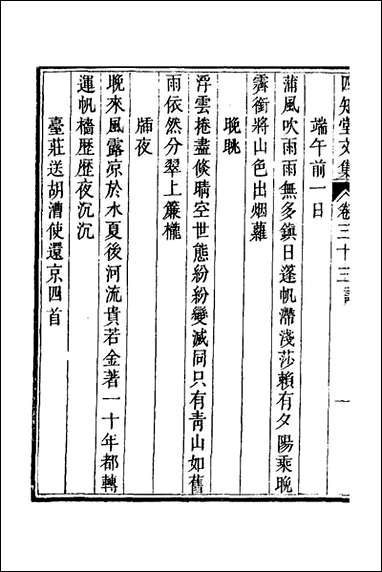 四知堂文集 卷三十三 詩 一
端午前一日
蒲風吹雨雨無多鎮日蓬帆滯淺莎賴有夕陽乘晚
霽銜將山色出烟蘿
晚眺
浮雲捲盡倏晴空世態紛紛變滅同只有青山如舊
雨依然分翠上簾櫳
牐夜
晚來風露凉於水夏後河流貴若金著一十年都轉
運帆檣歷歷夜沉沉
臺莊送胡漕使還京四首